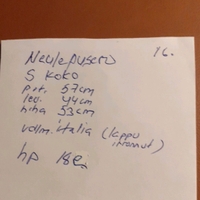 16.
Neulepusero
S koko
pit. 57cm
lev. 44cm
hiha 53cm
valm. italia (lappu
irronnut)
hp 18e